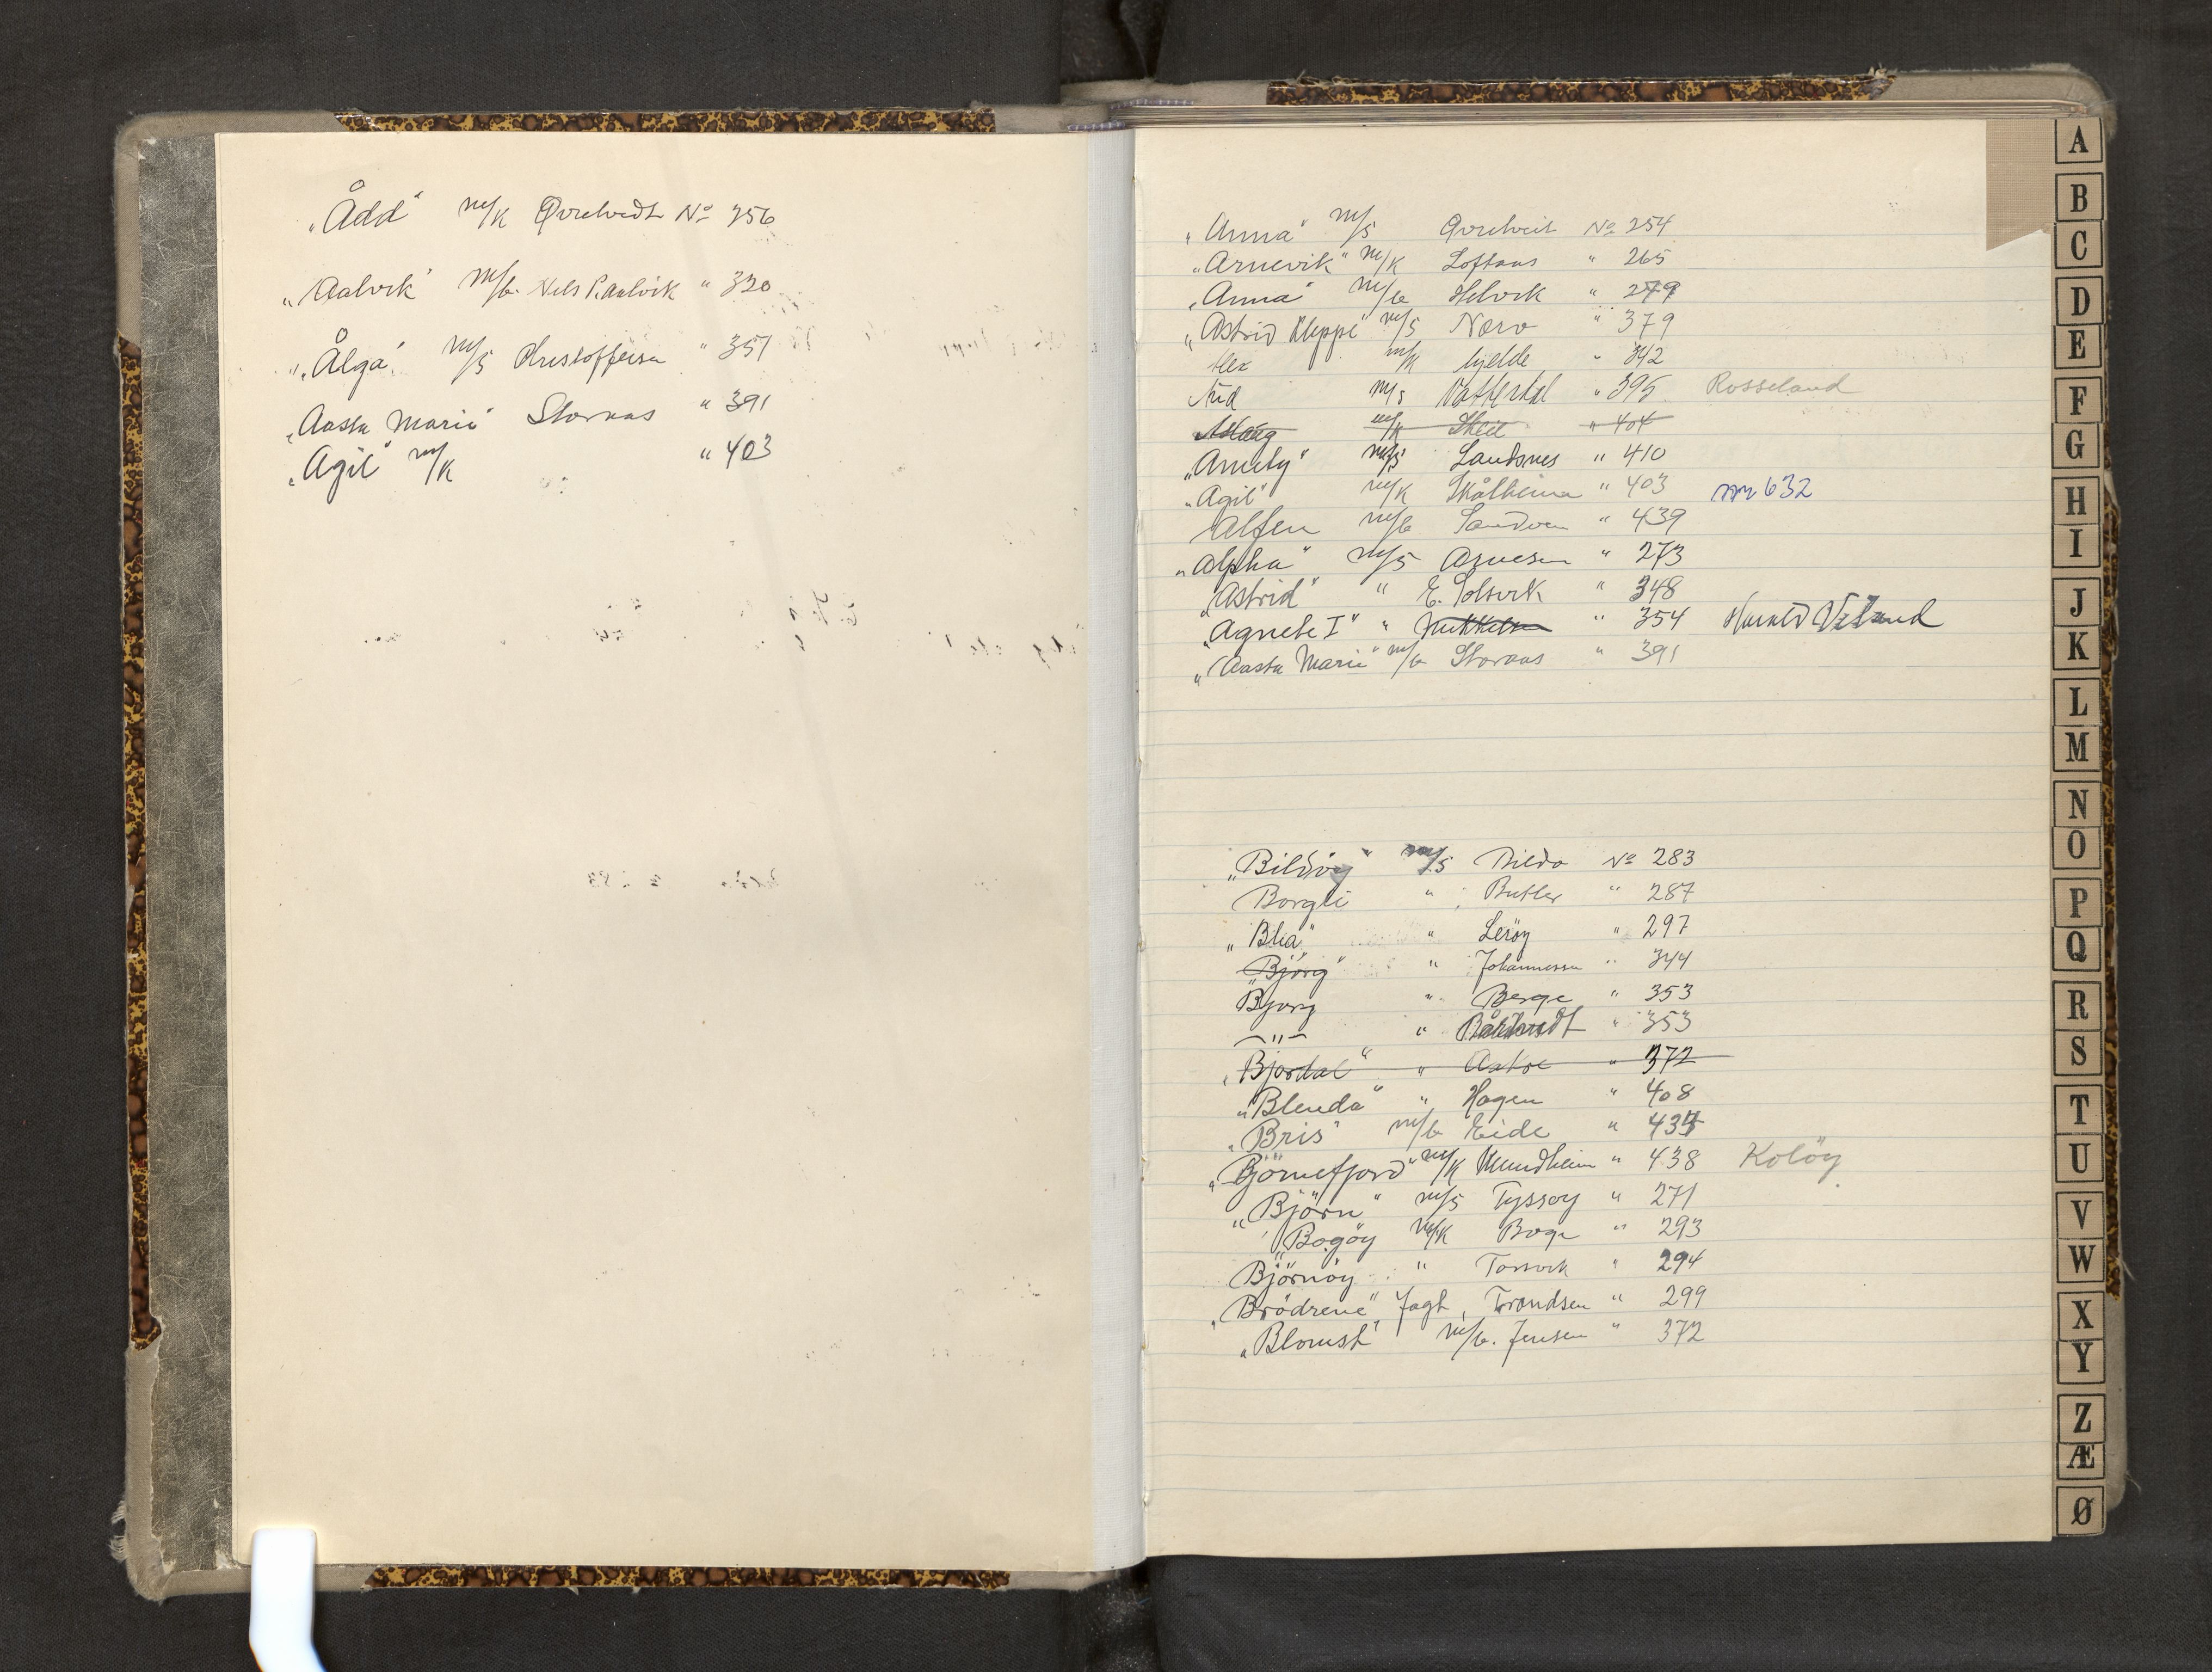 „Ådd" m/k Qvrehvidt No 256
„Aalvik" m/b. Nels P. Aalvik " 320
„Ålga" m/s Khristoffersen " 351
„Aasta Marie" Stornas " 391
„Agil" m/k " 403
„Anna" m/s Qvrehvit No 254
„Arnevik" m/k Loftaas " 265
„Anna" m/b Helvik " 279
„Astrid Kleppe" m/s Nærø " 379
Alex m/k Gjelde " 342
Arid m/s Vattedal " 395 Rosseland
Aslaug m/k Skeie " 404
„Amely" m/s Landsnes " 410
„Agil" m/k Skålheim " 403 nr 632
Alfen m/b Sandven " 439
„Alpha" m/s Arnesen " 273
„Astrid" " E. Solsvik " 348
„Agnete I" " " 354 Harald Vetland
„Aasta Marie" m/b Stornas " 391
„Bildöy" m/s Bildo No 283
Borgli " Butler " 287
„Blia" " Leröy " 297
„Björg" " Johannessen " 344
Bjorg " Berge " 353
—"— " " 353
„Bjordal" " Aakre " 372
„Blenda" " Hagen " 408
„Bris" m/b Eide " 437
„Björnefjord" m/k Mundheim " 438 Kolöy
„Björn" m/s Tyssøy " 271
„Bogöy m/k Boge " 293
Björnöy " Torsvik " 294
„Brödrene" Jagt, Trondsen " 299
„Blomst" m/b. Jensen " 372
A
B
C
D
E
F
G
H
I
J
K
L
M
N
O
P
Q
R
S
T
U
V
W
X
Y
Z
Æ
Ø